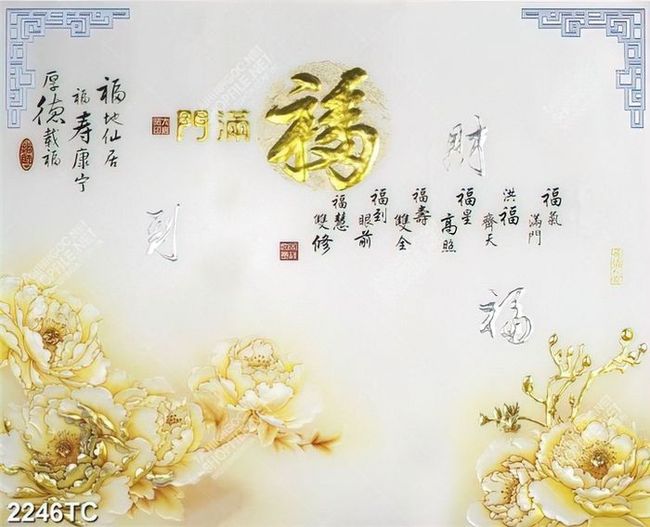 福
滿門
財
到
福
福氣滿門
洪福齊天
福星高照
福壽雙全
福到眼前
福慧雙修
福地仙居
福寿康宁
厚德載福
2246TC